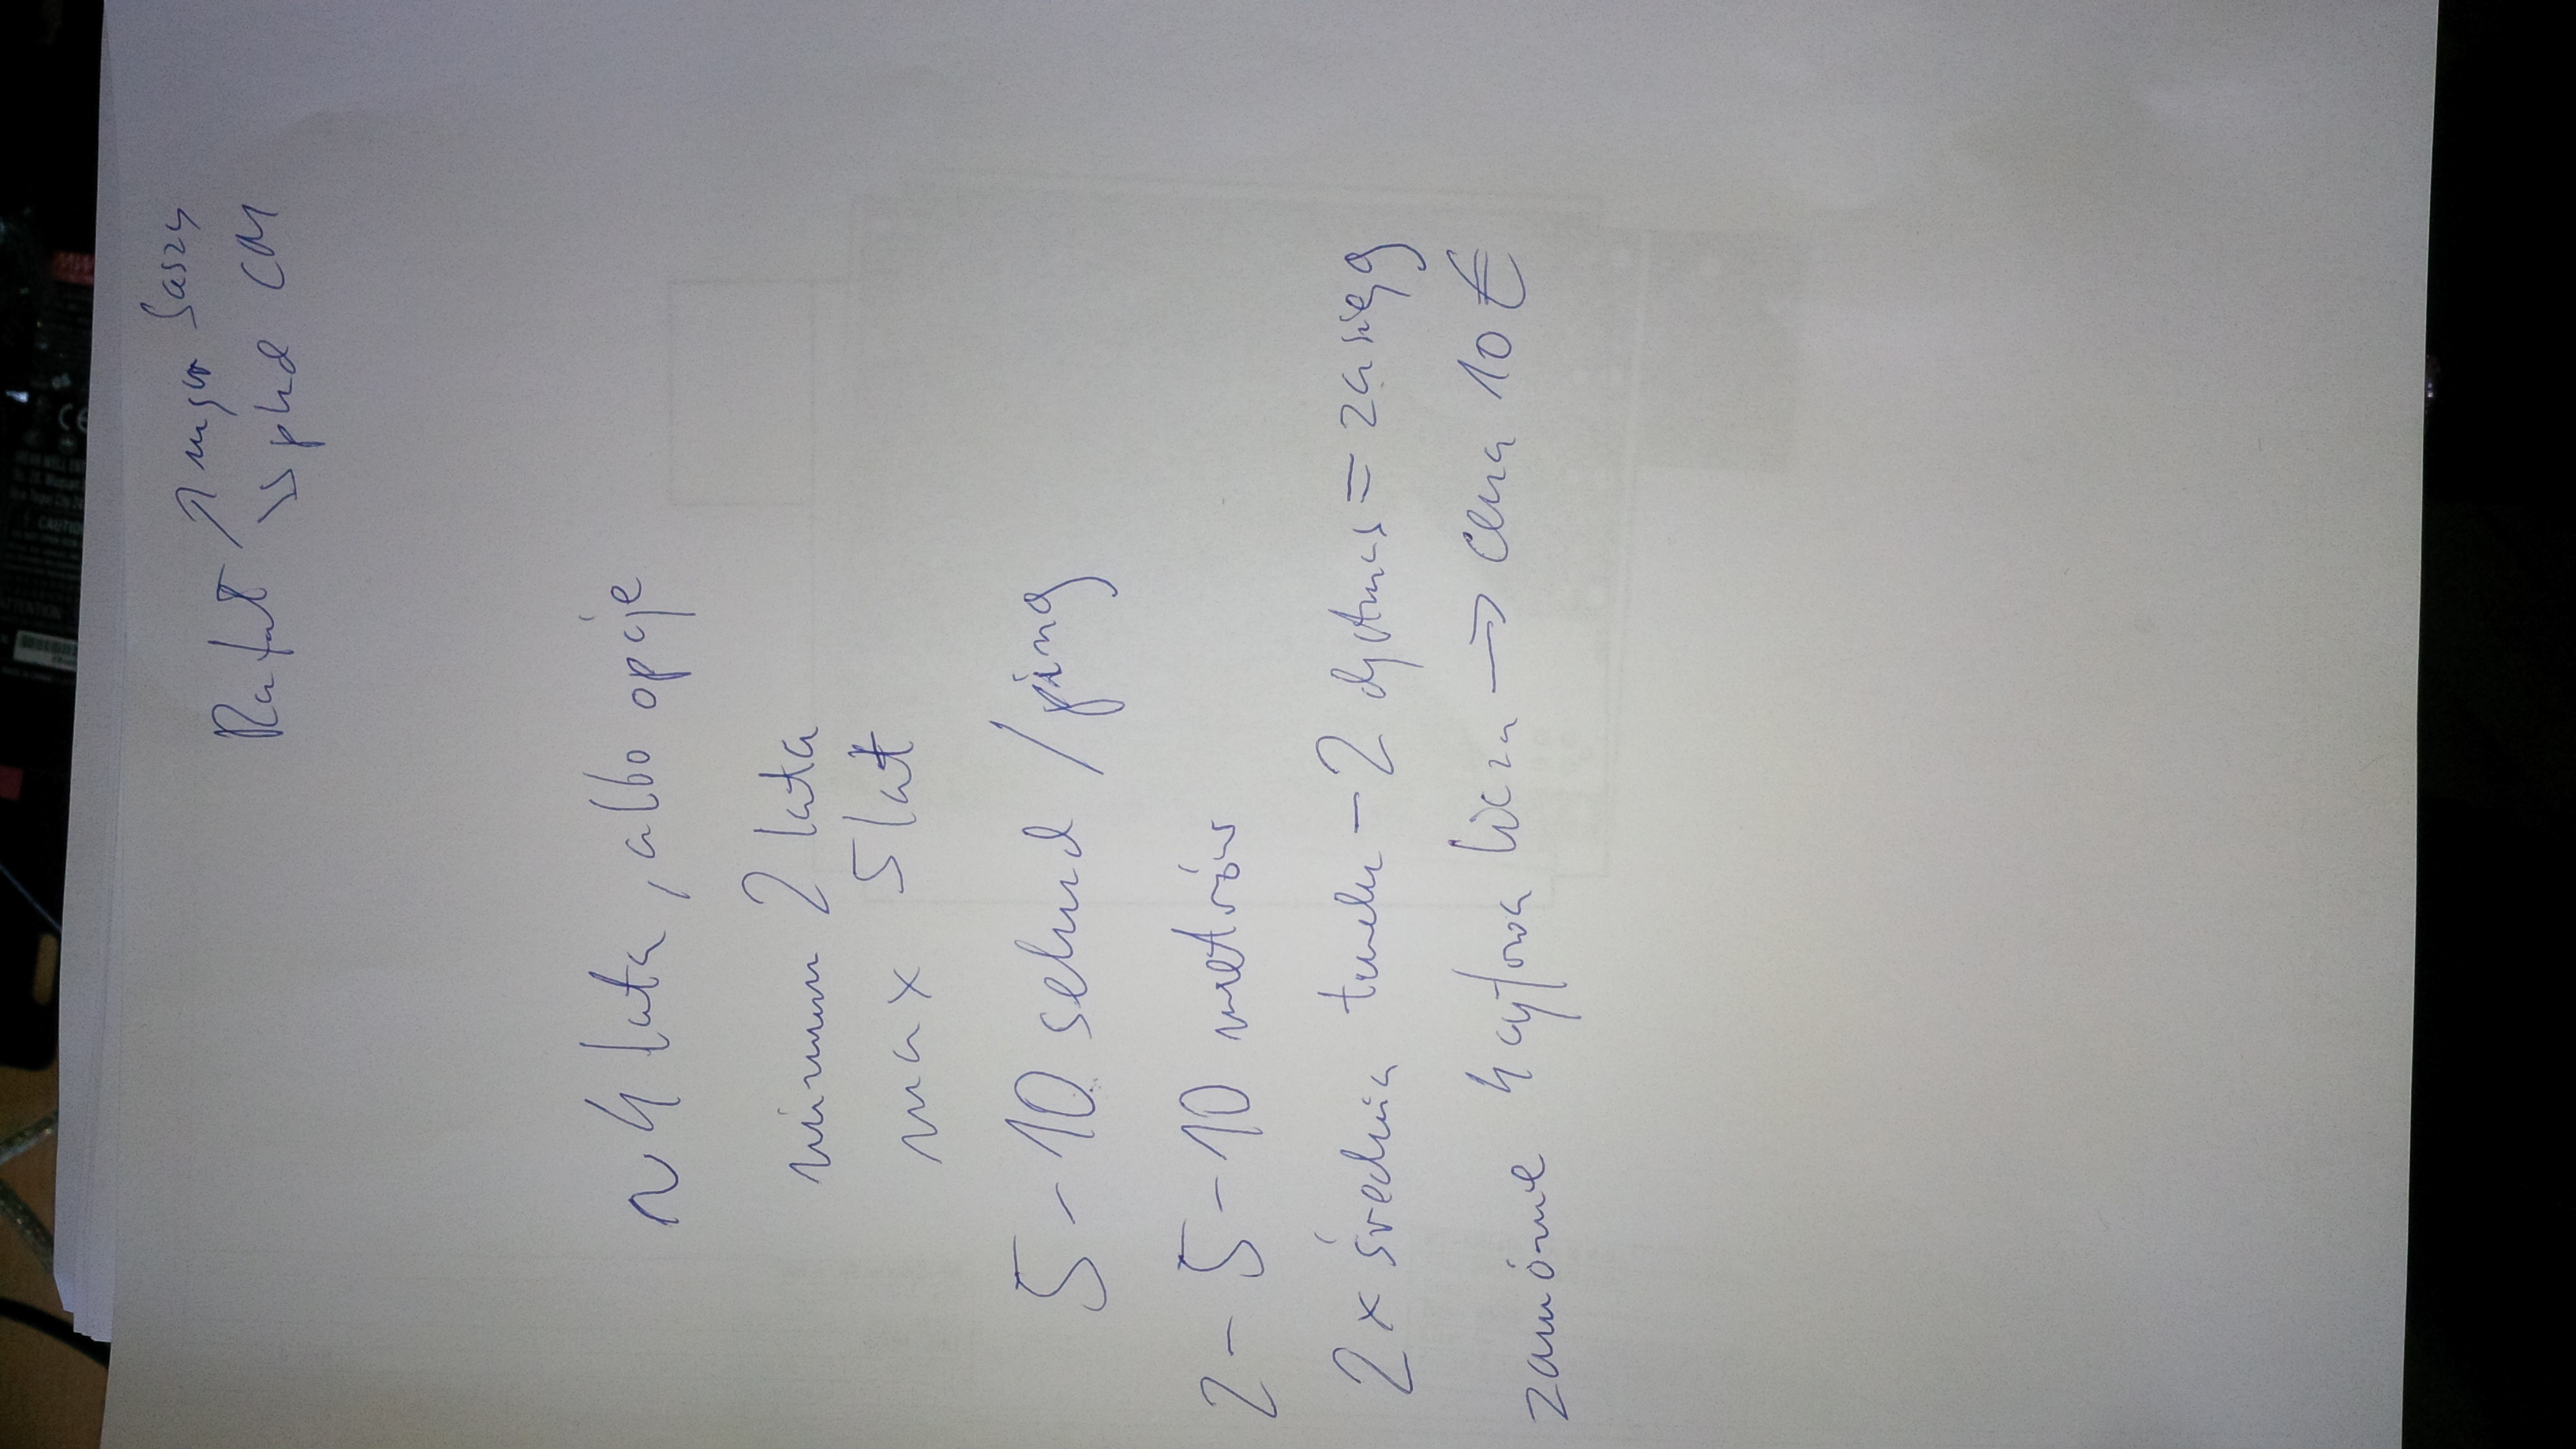 Rafał ↗ mgr Saszy
↘ phd CM
~ 4 lata, albo opcje
minimum 2 lata
max 5 lat
5-10 sekund / ping
2-5-10 metrów
2 x średnia - 2 dystans = zasięg
4 cyfrowa → cena 10 €